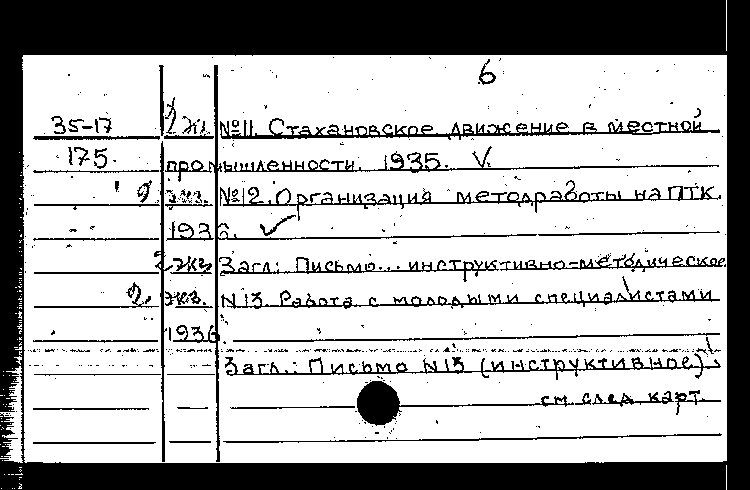 6
35-17 2 экз. №11. Стахановское движение в местной
175. промышленности. 1935. V.
2 экз. №12. Организация методработы на ПТК.
1936. ✓
2 экз Загл.: Письмо... инструктивно-методическое
2. экз. N 13. Работа с молодыми специалистами
1936.
Загл.: Письмо N13 (инструктивное)
см. след. карт.